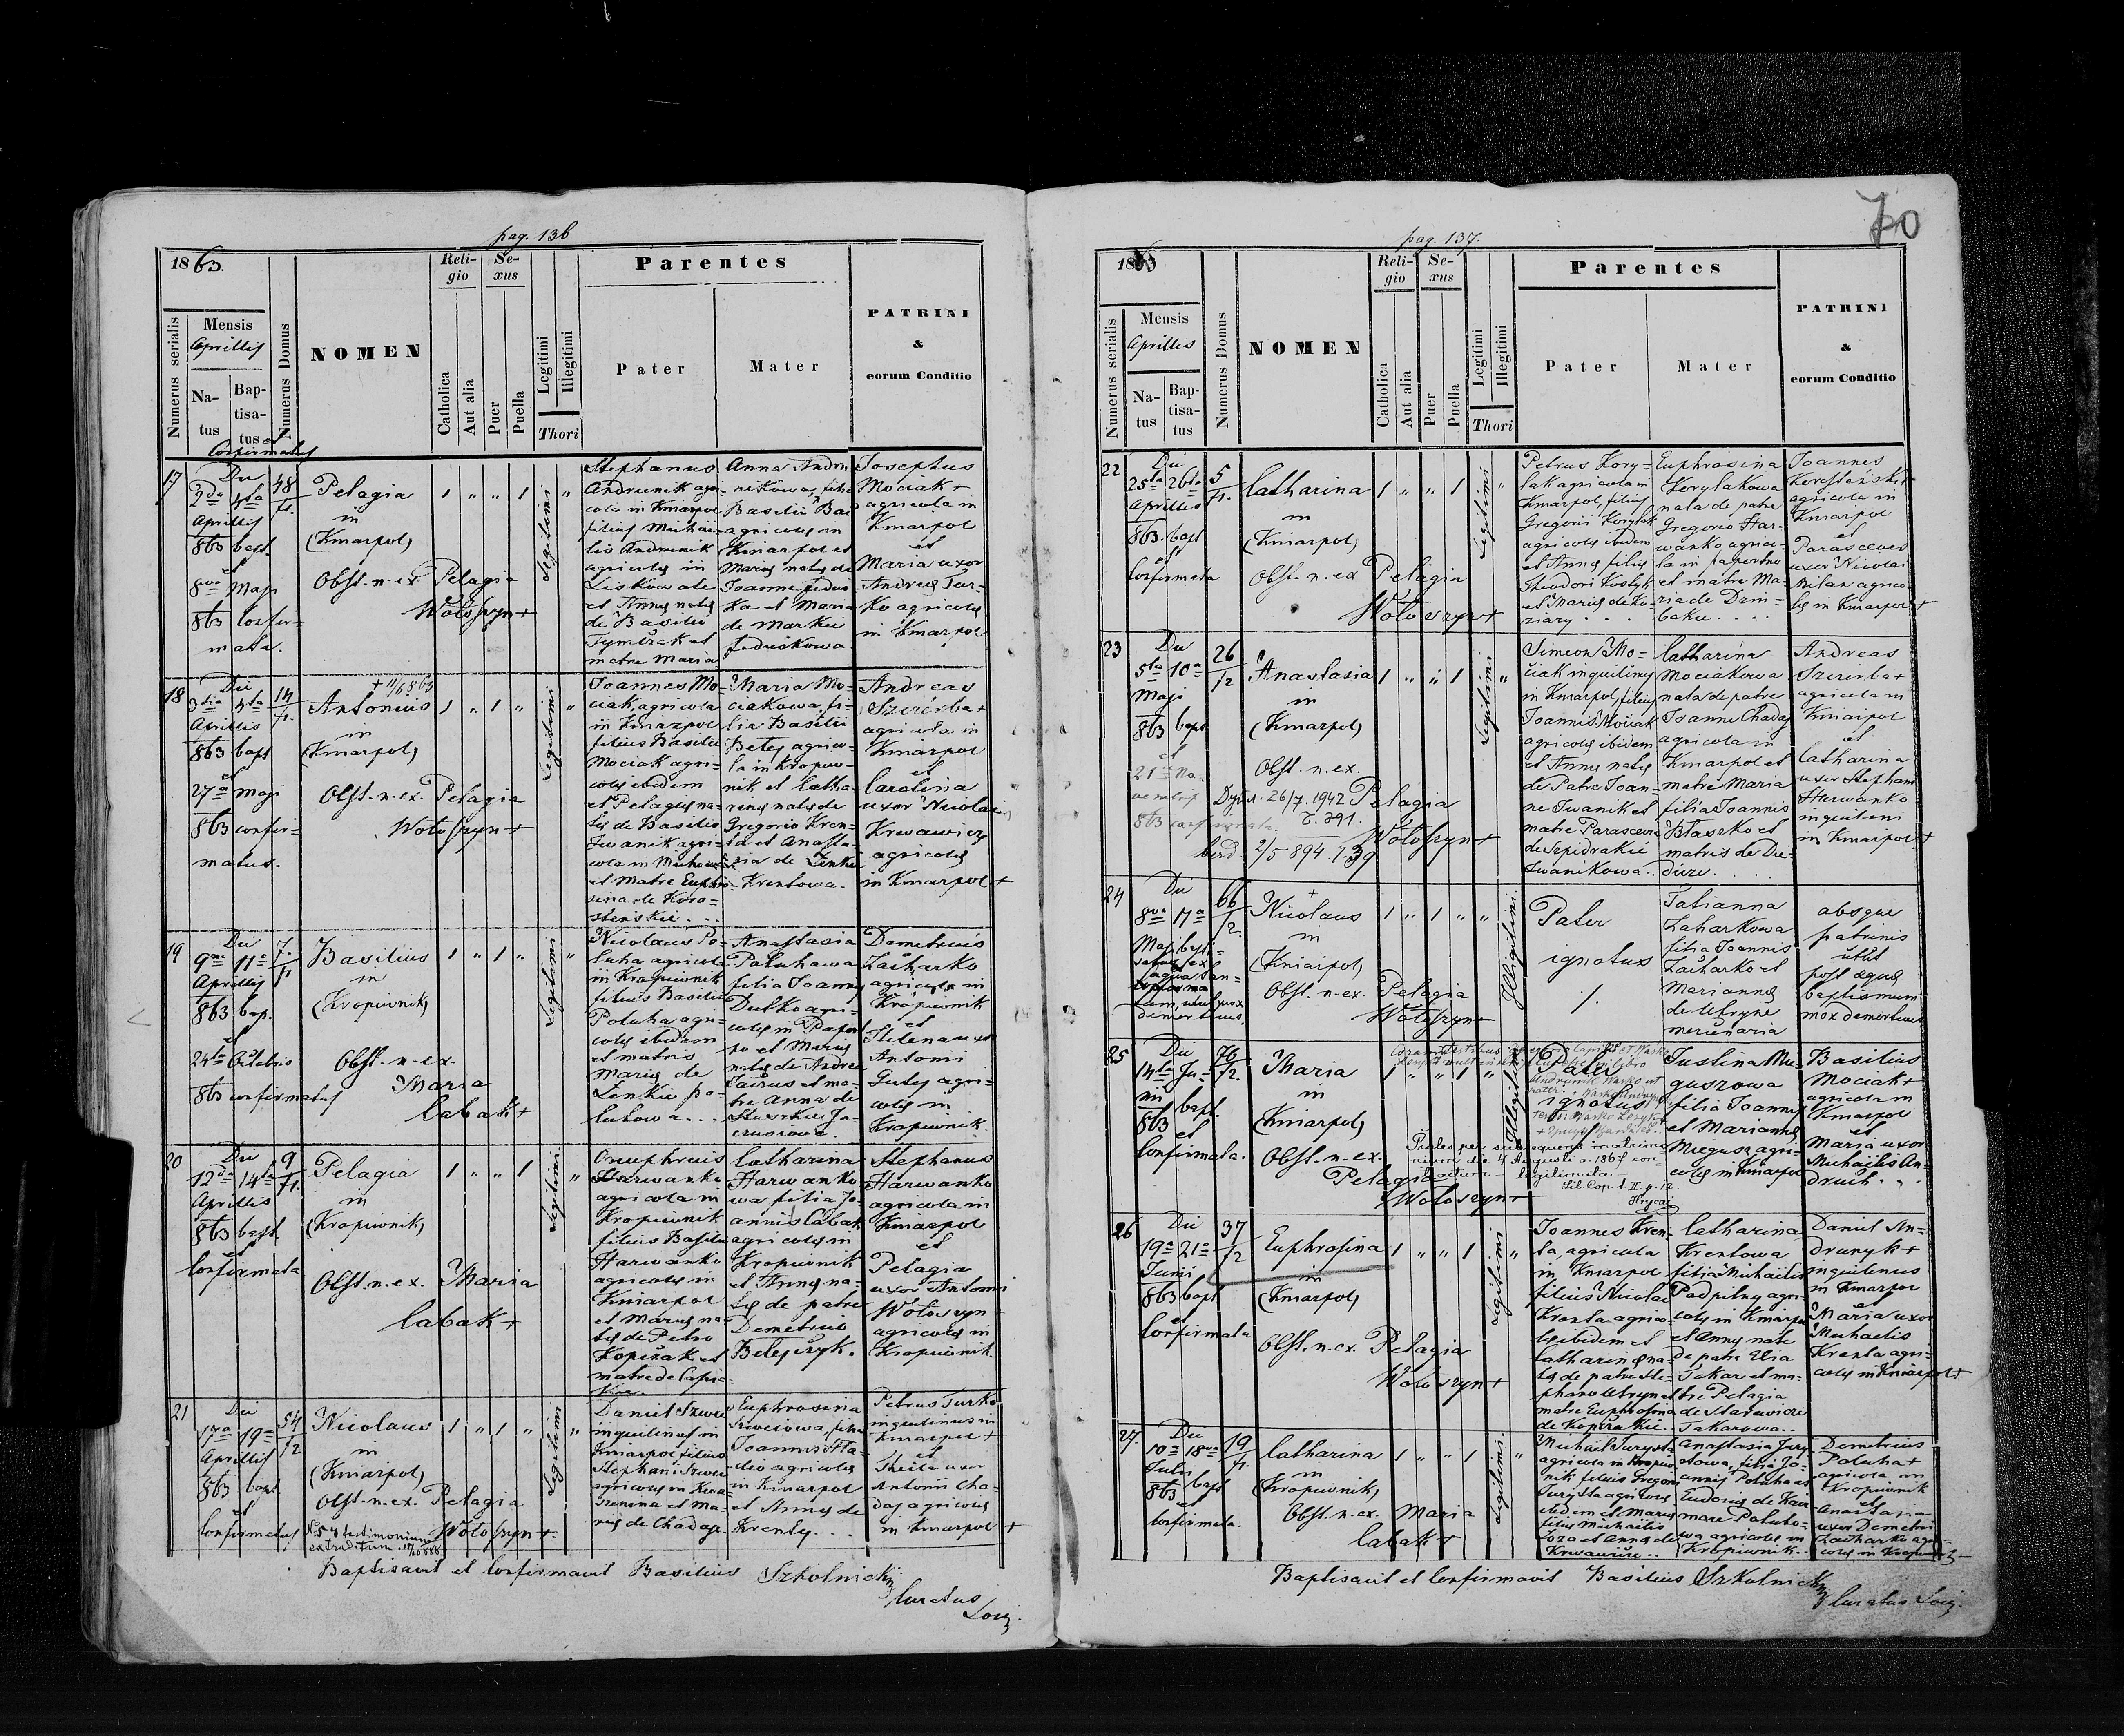 70
pag. 136
1863.
Numerus serialis
Mensis
Aprillis
Natus
Baptisatus
et
Confirmatus
Numerus Domus
NOMEN
Religio
Catholica
Aut alia
Sexus
Puer
Puella
Legitimi
Illegitimi
Thori
Parentes
Pater
Mater
PATRINI
&
eorum Conditio
17
Die
2da 4ta
Aprillis
863 bapt.
et
8va Maji
863 confir-
mata.
48
/1.
Pelagia
in
(Kniarpol)
Obst. n. ex. Pelagia
Wołoszyn +
1 " " 1
Legitimi
"
Stephanus
Andrunik agri-
cola in Kniarpol
filius Michaë-
lis Andrunik
agricolæ in
et Annæ natæ
de Basilio
matre Maria
Anna Andru-
nikowa, filia
Basilii
agricolæ in
Kniarpol et
Mariæ natæ de
Joanne Fedus-
ka et Maria
de Markii
Feduskowa
Josephus
Mociak +
agricola in
Kniarpol
et
Maria uxor
Andreæ Tur-
ko agricolæ
in Kniarpol
18
Die
3tia 4ta
Aprillis
863 bapt
et
27a Maji
863 confir-
matus.
14
/1.
+ 11/6 863
Antonius
in
(Kniarpol)
Obst. n. ex. Pelagia
Wołoszyn +
1 " 1 "
Legitimi
"
Joannes Mo-
ciak, agricola
in Kniarpol
filius Basilii
Mociak agri-
colæ ibidem
et Pelagiæ na-
tæ de Basilio
Iwanik agri-
cola in
et Matre Euphro-
sina de Koro-
steńskie . . .
Maria Mo-
ciakowa, fi-
lia Basilii
Betej agrico-
la in Kropiw-
nik et Catha-
rinæ natæ de
Gregorio Kren-
ta et Anasta-
sia de Zenkii
Krentowa.
Andreas
Szczerba +
agricola in
Kniarpol
et
Carolina
uxor Nicolai
Krwawicz
agricolæ
in Kniarpol +
19
Die
9na 11a
Aprillis
863 bap.
et
24ta Octobris
863 confirmatus
7.
/1
Basilius
in
(Kropiwnik)
Obst. n. ex.
Maria
Cabak +
1 " 1 "
Legitimi
"
Nicolaus Po-
luha agricola
in Kropiwnik
filius Basilii
Poluha agri-
colæ ibidem
et matris
Mariæ de
Zenkii Po-
luhowa . . .
Anastasia
Poluhowa
filia Joannis
Dutko agri-
colæ in
et Mariæ
natæ de Andrea
et ma-
tre Anna de
Demetrius
Zacharko
agricola in
Kropiwnik
et
Helena uxor
Antoni
Gutej agri-
colæ in
Kropiwnik
20
Die
12da 14ta
Aprillis
863 bapt.
et
Confirmata
9
/1.
Pelagia
in
(Kropiwnik)
Obst. n. ex. Maria
Cabak +
1 " " 1
Legitimi
"
Onuphrius
Harwanko
agricola in
Kropiwnik
filius Basilii
Harwanko
agricolæ in
Kniarpol
et Mariæ na-
tæ de Petro
Kopczak et
matre de
Catharina
Harwanko-
wa filia Jo-
annis Cabak
agricolæ in
Kropiwnik
et Annæ na-
tæ de patre
Demetrio
Betejczyk.
Stephanus
Harwanko
agricola in
Kniarpol
et
Pelagia
uxor Antoni
Wołoszyn
agricolæ in
Kropiwnik.
21
Die
17a 19a
Aprillis
863 bapt.
et
Confirmatus
54
/2
Nicolaus
in
(Kniarpol)
Obst. n. ex. Pelagia
Wołoszyn +.
testimonium
extraditum
1 " 1 "
Legitimi
"
Daniel Szwec
inquilinus in
Kniarpol filius
Stephani Szwec
agricolæ in
et Ma-
riæ de Chadaj
Euphrosina
Szwecowa, filia
Joannis
agricolæ
in Kniarpol
et Annæ de
Krentej. . .
Petrus Turko
inquilinus in
Kniarpol +
et
Thecla uxor
Antonii Cha-
daj agricolæ
in Kniarpol +
Baptisavit et Confirmavit Basilius Szkolnicki
Curatus
Loci
pag. 137.
1863
Numerus serialis
Mensis
Aprilles
Natus
Baptisatus
Numerus Domus
NOMEN
Religio
Catholica
Aut alia
Sexus
Puer
Puella
Legitimi
Illegitimi
Thori
Parentes
Pater
Mater
PATRINI
&
eorum Conditio
22
Die
25ta 26ta
Aprilles
863. bapt
et
Confirmata
5
/1.
Catharina
in
(Kniarpol)
Obst. n. ex Pelagia
Wołoszyn +
1 " " 1
Legitimi
"
Petrus Kory-
lak agricola in
Kniarpol, filius
Gregorii Korylak
agricolæ ibidem
et Annæ filiæ
Theodori Kostyk
et Mariæ de Ko-
ziary . . .
Euphrosina
Korylakowa
nata de patre
Gregorio Har-
wanko agrico-
la in
et matre Ma-
ria de Dzin-
beku . . . .
Joannes
agricola in
Kniarpol
et
Parasceves
uxor Nicolai
Milan agrico-
læ in Kniarpol +
23
Die
5ta 10a
Maji
863 bapt
et
21a No-
vembris
863 confirmata.
26
/2
Anastasia
in
(Kniarpol)
Obst. n. ex.
Pelagia
Wołoszyn +
26/7. 1942
T. 391.
2/5 894
1 " " 1
Legitimi
"
Simeon Mo-
ciak inquilinus
in Kniarpol, filius
Joannis Mociak
agricolæ ibidem
et Annæ natæ
de Patre Joan-
ne Iwanik et
matre Parascevia
de Szpidrakii
Iwanikowa . .
Catharina
Mociakowa
nata de patre
Joanne Chadaj
agricola in
Kniarpol et
matre Maria
filia Joannis
Błaszko et
matris de
Andreas
Szczerba +
agricola in
Kniarpol
et
Catharina
uxor Stephani
Harwanko
inquilini
in Kniarpol. +
24
Die
8va 17a
Maji
66
/2.
+
Nicolaus
in
(Kniarpol)
Obst. n. ex. Pelagia
Wołoszyn +
1 " 1 " "
Illegitimi
Pater
ignotus
/.
Tatianna
Zaharkowa
filia Joannis
Zacharko et
Mariannæ
mercenaria
absque
patrinis
utut
post æque
baptismum
mox demortuus
25
Die
14ta Ju-
nii
863 bapt.
et
Confirmata.
76
/2.
Maria
in
(Kniarpol)
Obst. n. ex.
Pelagia
Wołoszyn +
1 " " 1 "
Illegitimi
Pater
ignotus
Proles per subsequens matrimo-
nium die 4 Augusti a. 1867 con-
tractum legitimata.
Lib. Cop. t. II. p. 12.
Hrycaj
Justina Mie-
guszowa
filia Joannis
et Mariannæ
Miegusz agri-
colæ in Kniarpol
Basilius
Mociak +
agricola in
Kniarpol
et
Maria uxor
Michaelis An-
druch . .
26
Die
19a 21a
Junii
863 bapt
et
Confirmata
37
/2
Euphrosina
in
(Kniarpol)
Obst. n. ex. Pelagia
Wołoszyn +
1 " " 1
Legitimi
"
Joannes Kren-
ta, agricola
in Kniarpol
filius Nicolai
Krenta agrico-
læ ibidem et
Catharinæ na-
tæ de patre Ste-
phano et
matre Euphrosina
de
Catharina
Krentowa
filia Michaelis
Padpilny agri-
colæ in Kniarpol
et Annæ natæ
de patre Elia
Takar et ma-
tre Pelagia
de
Takarowa . .
Daniel An-
drunyk +
inquilinus
in Kniarpol
et
Maria uxor
Michaelis
Krenta agri-
colæ in Kniarpol +
27.
Die
10a 18va
Julii
863 bapt
et
Confirmata.
19
/1.
Catharina
in
(Kropiwnik)
Obst. n. ex. Maria
Cabak +
1 " " 1
Legitimi
"
Michael Turysta
agricola in Kropiw-
nik filius Gregorii
Turysta agricolæ
ibidem et Mariæ
filiæ Michaelis
et Annæ de
Anastasia Tury-
stowa, filia Jo-
annis Poluha et
Eudociæ de
Poluho-
wa agricolæ in
Kropiwnik . .
Demetrius
Poluha +
agricola in
Kropiwnik
et
Anastasia
uxor Demetrii
Zacharko agri-
colæ in Kropiwnik
Baptisavit et Confirmavit Basilius Szkolnicki
Curatus Loci.